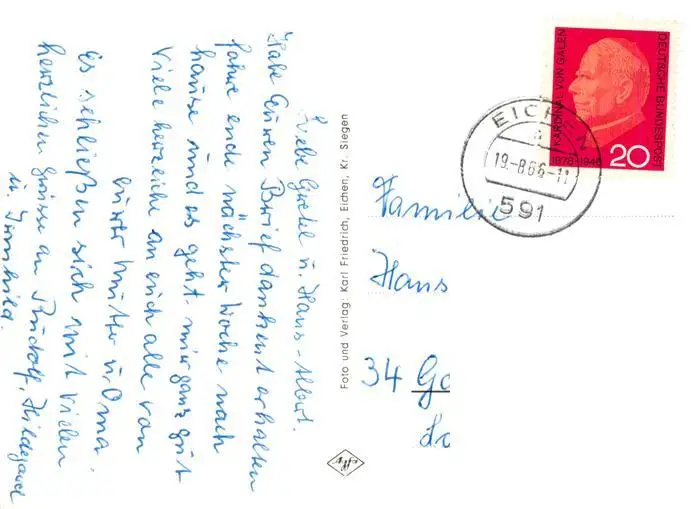 Liebe Gretel u. Hans-Albert.
Habe Euren Brief dankent erhalten
fahre ende nächster Woche nach
hause und es geht mir ganz gut
Viele herzliche an euch alle von
eurer Mutter u. Oma
Es schließen sich mit vielen
herzlichen Grüsse an Rudolf, Hildegard
u. Irmhild.
Foto und Verlag: Karl Friedrich, Eichen, Kr. Siegen
Agfa
KARDINAL VON GALEN
DEUTSCHE BUNDESPOST
1878-1946
20
EICHEN
a
19.-8.66-11
591
Familie
Hans
34 Go